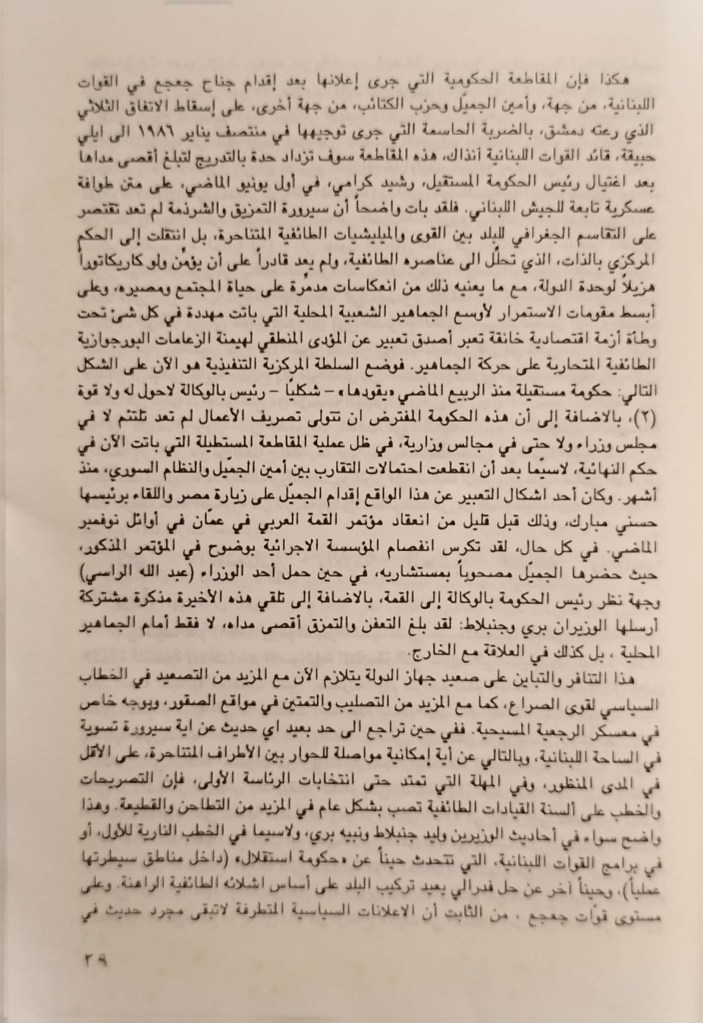 هكذا فإن المقاطعة الحكومية التي جرى إعلانها بعد إقدام جناح جعجع في القوات
اللبنانية، من جهة، وأمين الجميّل وحزب الكتائب، من جهة أخرى، على إسقاط الاتفاق الثلاثي
الذي رعته دمشق، بالضربة الحاسمة التي جرى توجيهها في منتصف يناير ١٩٨٦ الى ايلي
حبيقة، قائد القوات اللبنانية آنذاك، هذه المقاطعة سوف تزداد حدة بالتدريج لتبلغ أقصى مداها
بعد اغتيال رئيس الحكومة المستقيل، رشيد كرامي، في أول يونيو الماضي، على متن طوافة
عسكرية تابعة للجيش اللبناني. فلقد بات واضحاً أن سيرورة التمزيق والشرذمة لم تعد تقتصر
على التقاسم الجغرافي للبلد بين القوى والميليشيات الطائفية المتناحرة، بل انتقلت إلى الحكم
المركزي بالذات، الذي تحلَّل الى عناصره الطائفية، ولم يعد قادراً على أن يؤمِّن ولو كاريكاتوراً
هزيلاً لوحدة الدولة، مع ما يعنيه ذلك من انعكاسات مدمِّرة على حياة المجتمع ومصيره، وعلى
أبسط مقومات الاستمرار لأوسع الجماهير الشعبية المحلية التي باتت مهددة في كل شئ تحت
وطأة أزمة اقتصادية خانقة تعبر أصدق تعبير عن المؤدى المنطقي لهيمنة الزعامات البورجوازية
الطائفية المتحاربة على حركة الجماهير. فوضع السلطة المركزية التنفيذية هو الآن على الشكل
التالي: حكومة مستقيلة منذ الربيع الماضي «يقودها» – شكليًا – رئيس بالوكالة لاحول له ولا قوة
(٢)، بالاضافة إلى أن هذه الحكومة المفترض ان تتولى تصريف الأعمال لم تعد تلتئم لا في
مجلس وزراء ولا حتى في مجالس وزارية، في ظل عملية المقاطعة المستطيلة التي باتت الآن في
حكم النهائية، لاسيّما بعد أن انقطعت احتمالات التقارب بين أمين الجميّل والنظام السوري، منذ
أشهر. وكان أحد اشكال التعبير عن هذا الواقع إقدام الجميّل على زيارة مصر واللقاء برئيسها
حسني مبارك، وذلك قبل قليل من انعقاد مؤتمر القمة العربي في عمّان في أوائل نوفمبر
الماضي. في كل حال، لقد تكرس انفصام المؤسسة الاجرائية بوضوح في المؤتمر المذكور،
حيث حضرها الجميّل مصحوباً بمستشاريه، في حين حمل أحد الوزراء (عبد الله الراسي)
وجهة نظر رئيس الحكومة بالوكالة إلى القمة، بالاضافة إلى تلقي هذه الأخيرة مذكرة مشتركة
أرسلها الوزيران بري وجنبلاط: لقد بلغ التعفن والتمزق أقصى مداه، لا فقط أمام الجماهير
المحلية ، بل كذلك في العلاقة مع الخارج.
هذا التنافر والتباين على صعيد جهاز الدولة يتلازم الآن مع المزيد من التصعيد في الخطاب
السياسي لقوى الصراع، كما مع المزيد من التصليب والتمتين في مواقع الصقور، وبوجه خاص
في معسكر الرجعية المسيحية. ففي حين تراجع الى حد بعيد اي حديث عن اية سيرورة تسوية
في الساحة اللبنانية، وبالتالي عن أية إمكانية مواصلة للحوار بين الأطراف المتناحرة، على الأقل
في المدى المنظور، وفي المهلة التي تمتد حتى انتخابات الرئاسة الأولى، فإن التصريحات
والخطب على ألسنة القيادات الطائفية تصب بشكل عام في المزيد من التطاحن والقطيعة. وهذا
واضح سواء في أحاديث الوزيرين وليد جنبلاط ونبيه بري، ولاسيما في الخطب النارية للأول، أو
في برامج القوات اللبنانية، التي تتحدث حيناً عن «حكومة استقلال» (داخل مناطق سيطرتها
عملياً)، وحيناً آخر عن حل فدرالي يعيد تركيب البلد على أساس اشلائه الطائفية الراهنة. وعلى
مستوى قوّات جعجع ، من الثابت أن الاعلانات السياسية المتطرفة لاتبقى مجرد حديث في
٢٩